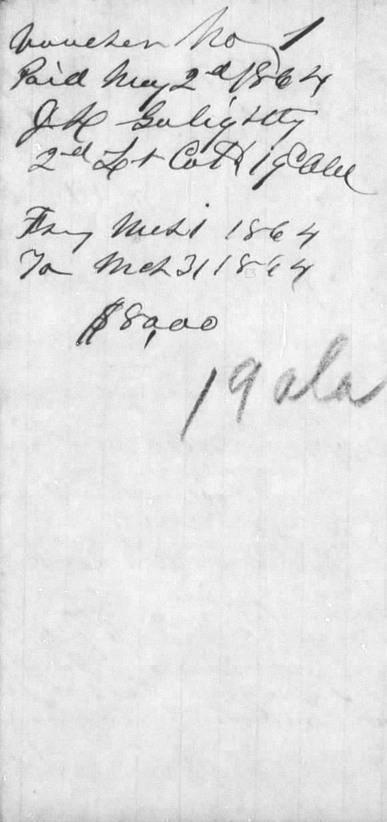 Voucher No 1
Paid May 2nd 1864
J H Golightly
2nd Lt Co H 19 Ala
From Mch 1 1864
To Mch 31 1864
$80,00
19 ala